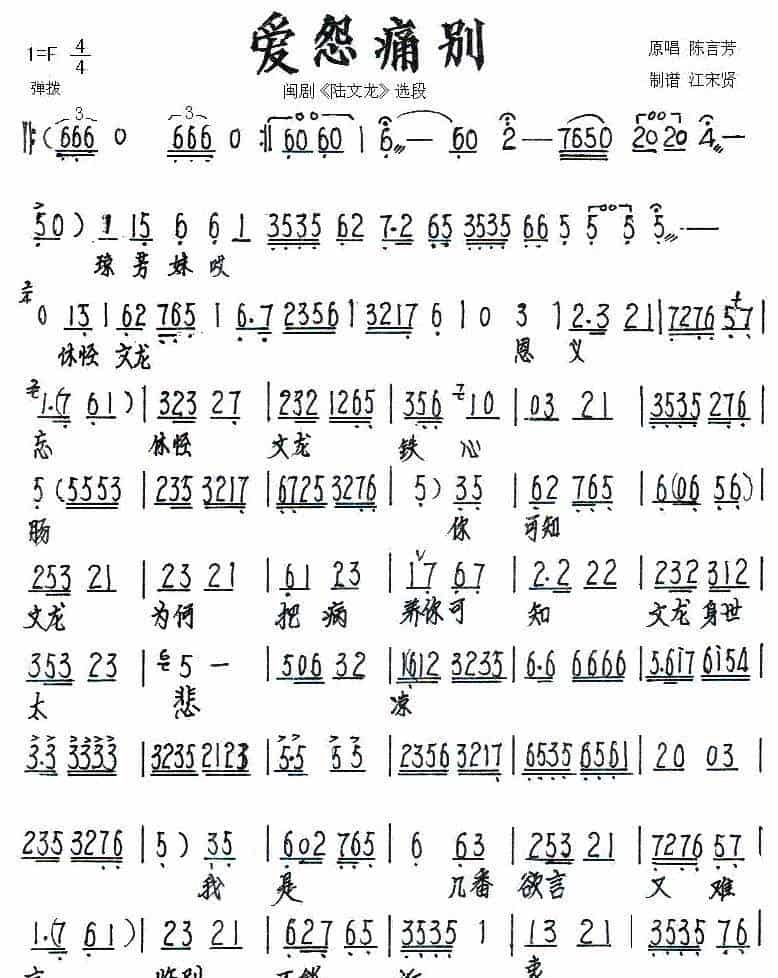 爱怨痛别
1=F 4/4
原唱 陈言芳
弹拨
闽剧《陆文龙》选段
制谱 江宋贤
3 3
𝄆 ( 666 0 666 0 :‖ 6060 | 6 — 60 2 — 7650 2020 4 —
50 ) 1 15 6 6 1 3535 62 7·2 65 3535 66 5 5 5 5 —
琼芳妹哎
0 13 | 62 765 | 6·7 2356 | 3217 6 | 0 3 | 2·3 21 | 7276 57 |
休怪 文龙 恩 义
1·(7 61) | 323 27 | 232 1265 | 356 10 | 03 21 | 3535 276 |
忘 休怪 文龙 铁 心
5 (5553 | 235 3217 | 6725 3276 | 5) 35 | 62 765 | 6(06 56) |
肠 你 可知
253 21 | 23 21 | 61 23 | 17 67 | 2·2 22 | 232 312 |
文龙 为何 把 病 养你可 知 文龙身世
353 23 | 5 – | 506 32 | 1612 3235 | 6·6 6666 | 5·617 6154 |
太 悲 凉
3·3 3333 | 3235 2123 | 5·5 55 | 2356 3217 | 6535 6561 | 20 03 |
235 3276 | 5) 35 | 602 765 | 6 63 | 253 21 | 7276 57 |
我 是 几番 欲言 又 难
1·(7 61) | 23 21 | 6276 65 | 3535 1 | 13 21 | 3535 76 |